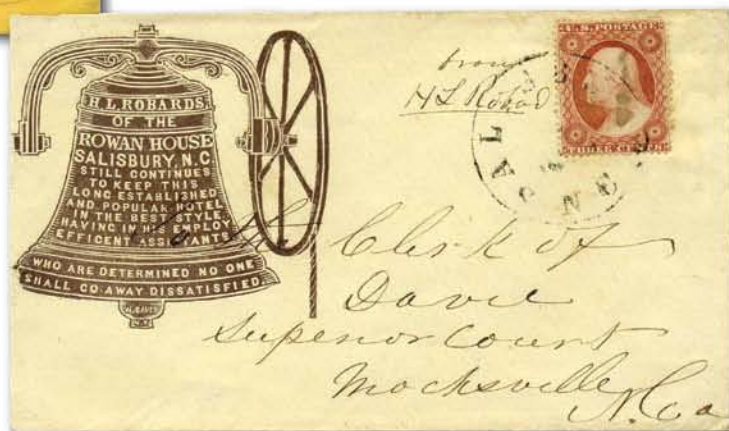 H. L. ROBARDS
OF THE
ROWAN HOUSE
SALISBURY, N.C.
STILL CONTINUES
TO KEEP THIS
LONG ESTABLISHED
AND POPULAR HOTEL
IN THE BEST STYLE,
HAVING IN HIS EMPLOY
EFFICENT ASSISTANTS
WHO ARE DETERMINED NO ONE
SHALL GO AWAY DISSATISFIED.
from
H L Robard
U.S. POSTAGE
THREE CENTS
To the Clerk of
Davie
Superior Court
Mocksville
N. Ca